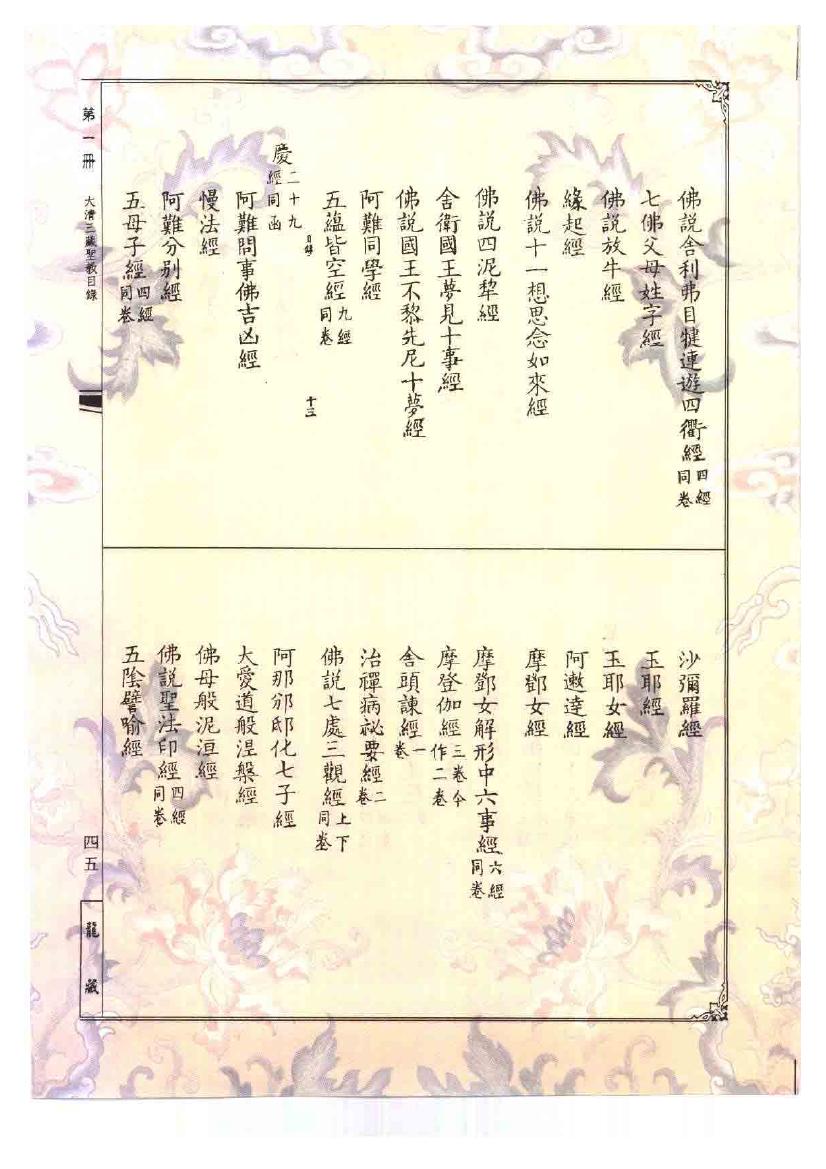 佛説舍利弗目犍連遊四衢經四經同卷
七佛父母姓字經
佛説放牛經
緣起經
佛説十一想思念如來經
佛説四泥犂經
舍衛國王夢見十事經
佛説國王不黎先尼十夢經
阿難同學經
五蘊皆空經九經同卷
目錄 十三
慶二十九經同函
阿難問事佛吉凶經
慢法經
阿難分别經
五母子經四經同卷
沙彌羅經
玉耶經
玉耶女經
阿遬達經
摩鄧女經
摩鄧女解形中六事經六經同卷
摩登伽經三卷今作二卷
舍頭諫經一卷
治禪病祕要經二卷
佛説七處三觀經上下同卷
阿那邠邸化七子經
大愛道般涅槃經
佛母般泥洹經
佛説聖法印經四經同卷
五陰譬喻經
第一册 大清三藏聖教目錄
四五
龍藏